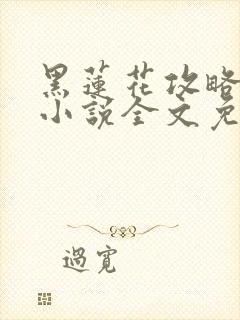 黑蓮花攻略
小說全文免
過寬